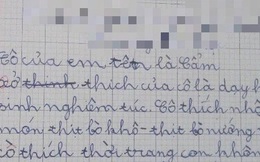 Cô của em tên là Cẩm
cở thinh thích của cô là dạy h
sinh nghiêm túc. Cô thích nhấ
món thịt bò khô - thịt bò nướng
cô thích thời trang con nhôn